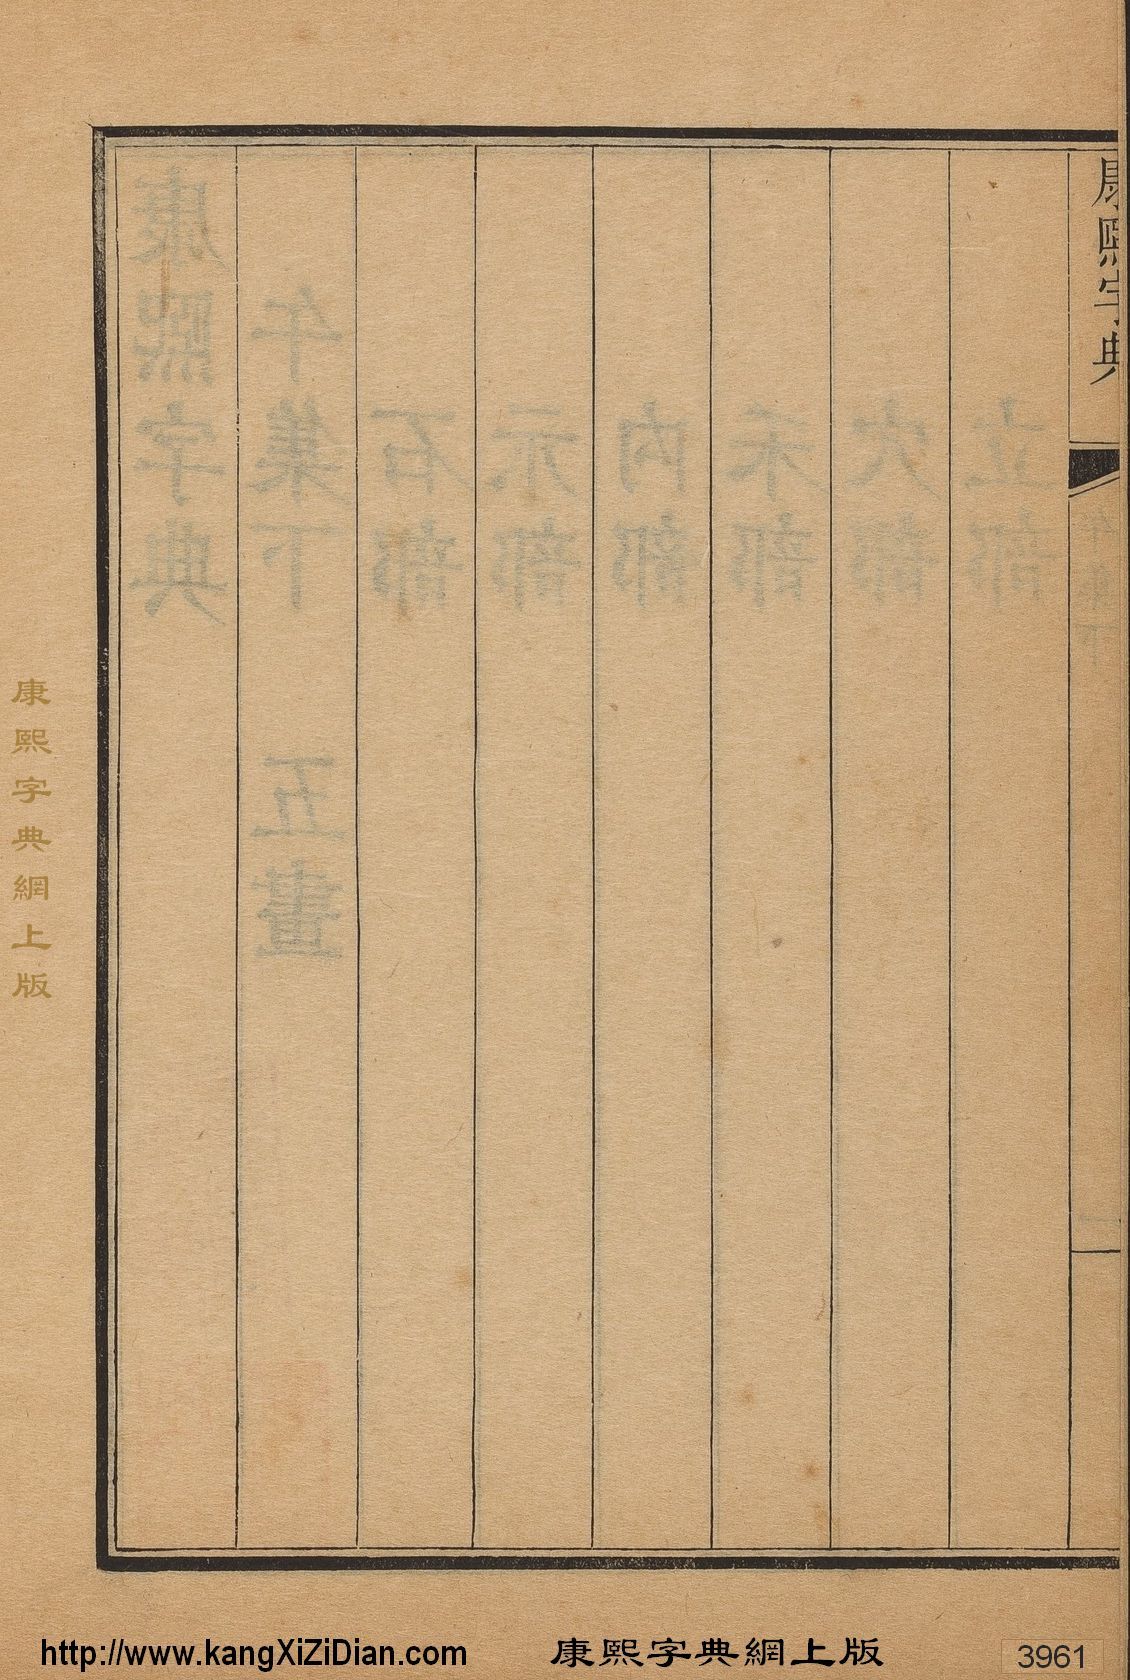 康熙字典
午集下 五畫
石部
示部
禸部
禾部
穴部
立部
康熙字典
午集下
一
康熙字典網上版
http://www.kangXiZiDian.com 康熙字典網上版 3961